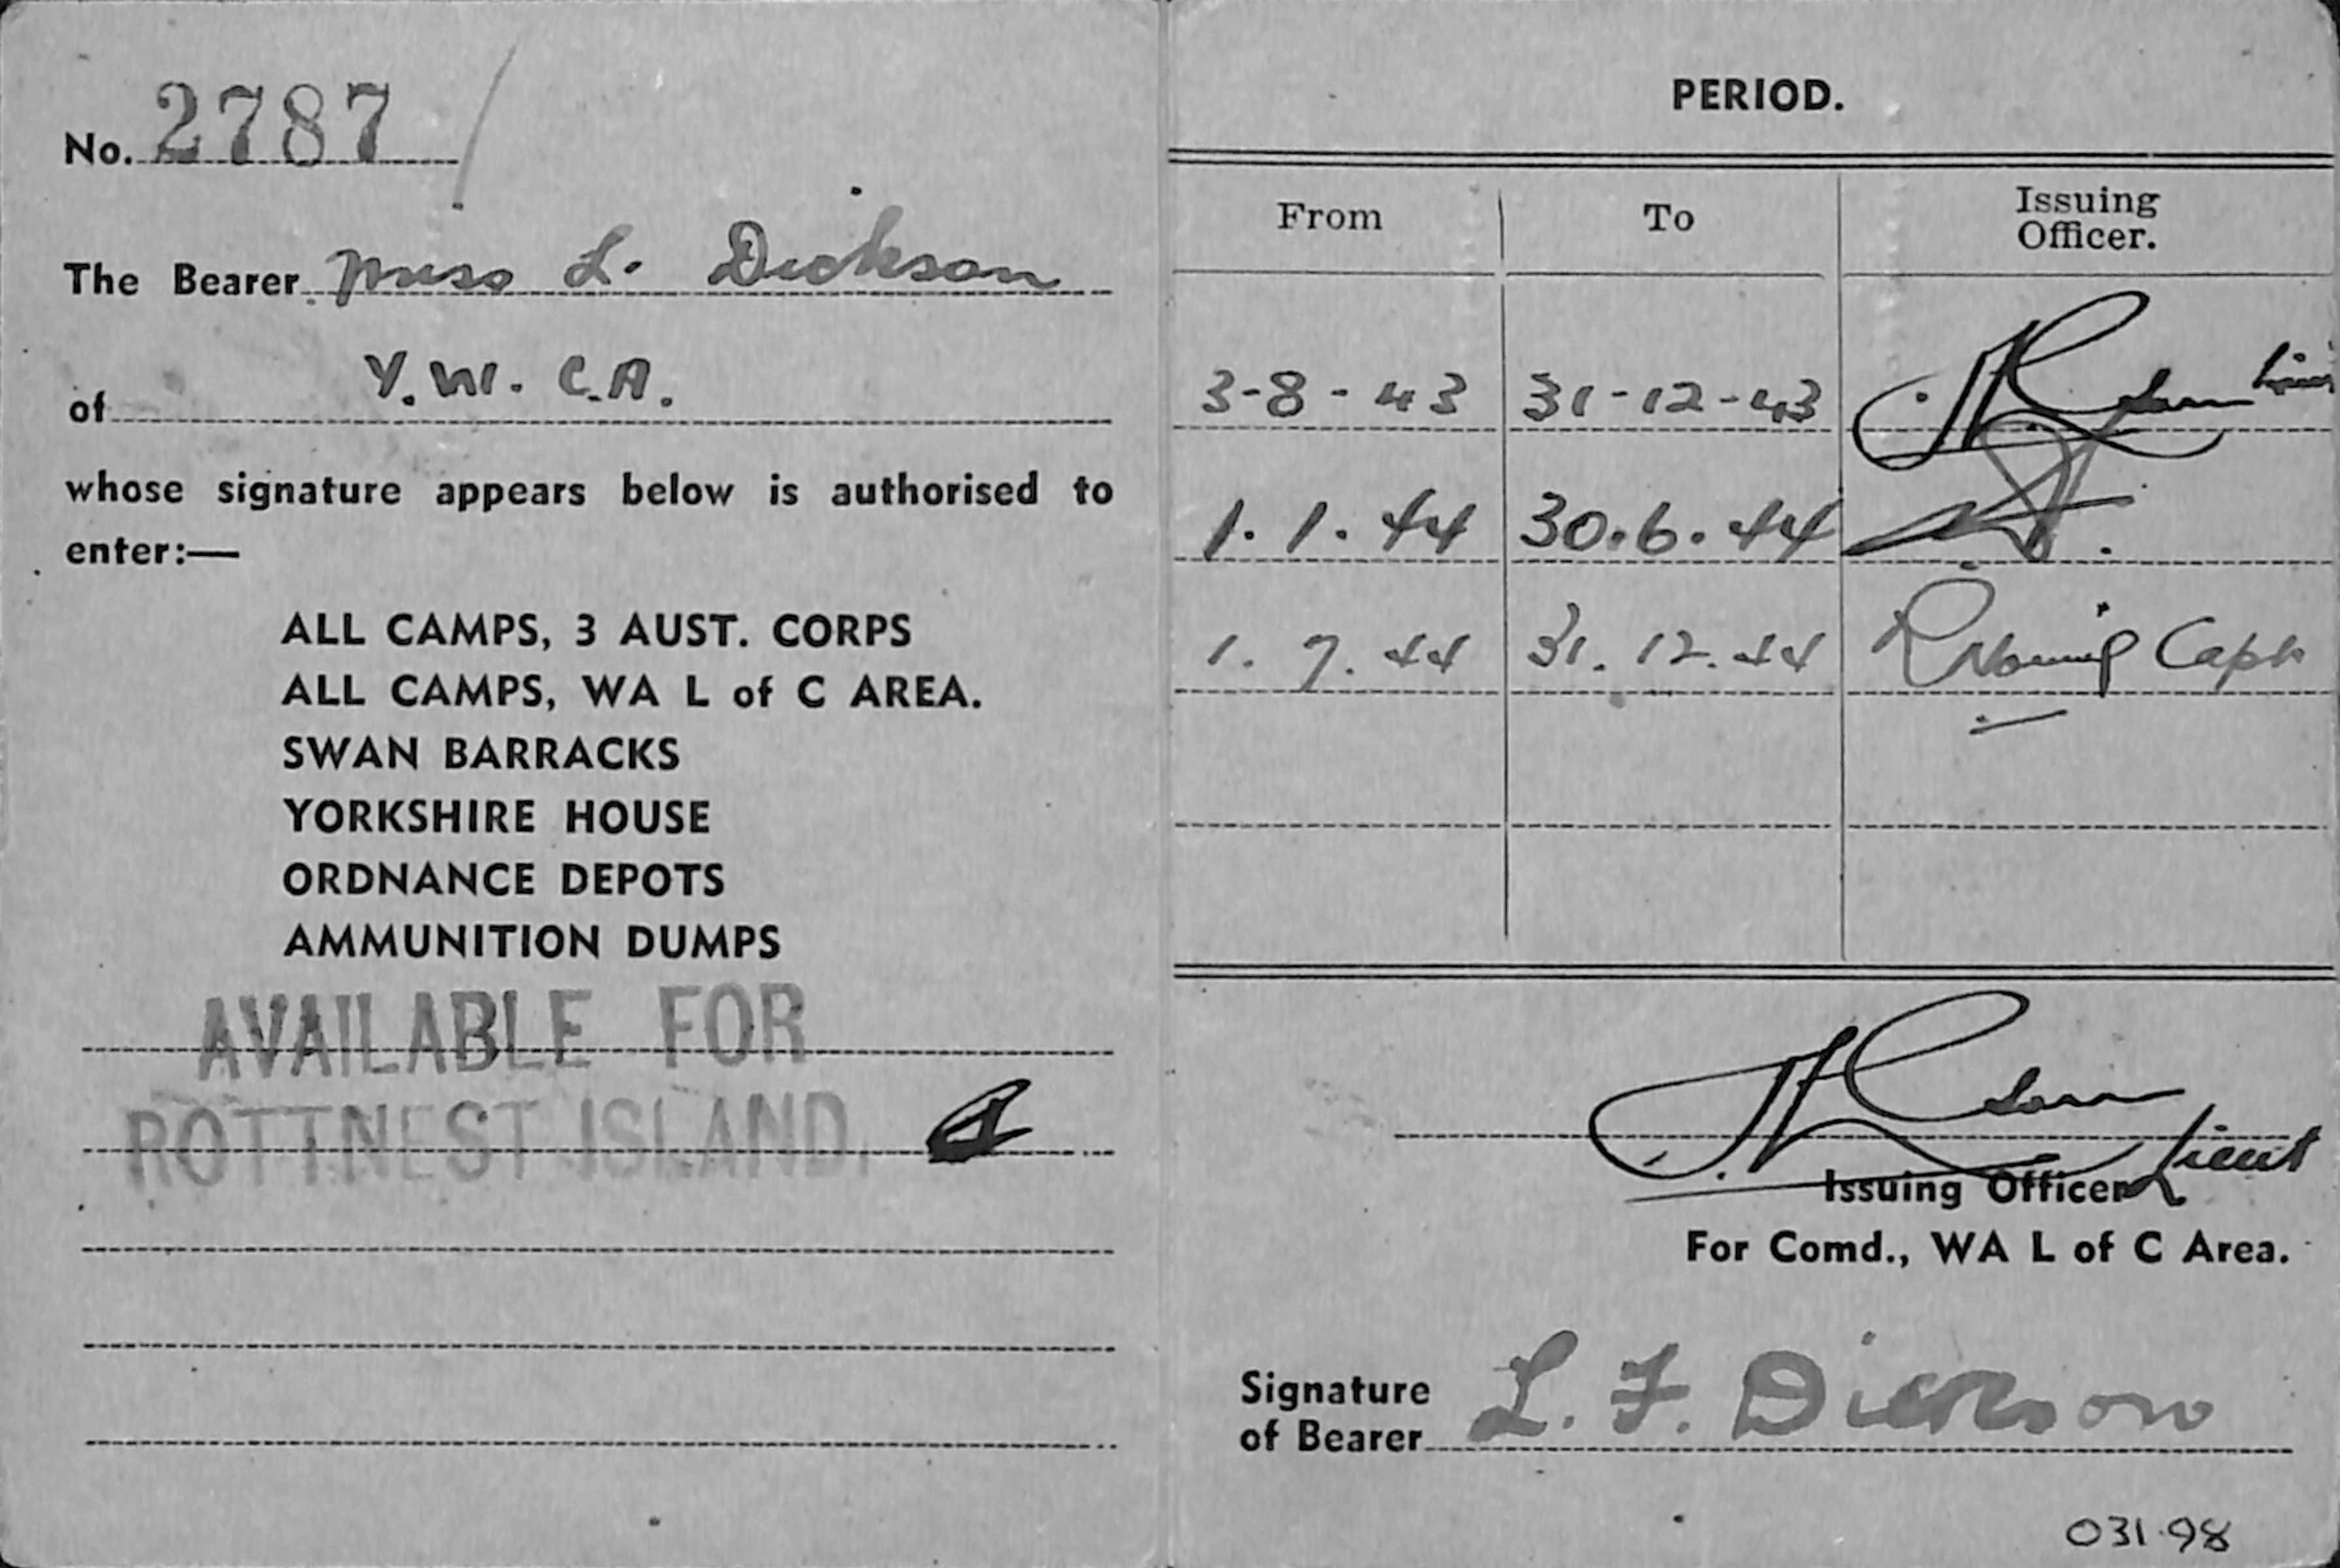 No. 2787
The Bearer Miss L. Dickson
of Y.W.C.A.
whose signature appears below is authorised to
enter:—
ALL CAMPS, 3 AUST. CORPS
ALL CAMPS, WA L of C AREA.
SWAN BARRACKS
YORKSHIRE HOUSE
ORDNANCE DEPOTS
AMMUNITION DUMPS
AVAILABLE FOR
ROTTNEST ISLAND
PERIOD.
From To Issuing Officer.
3-8-43 31-12-43
1.1.44 30.6.44
1.7.44 31.12.44 Capt
Lieut
Issuing Officer
For Comd., WA L of C Area.
Signature
of Bearer L. F. Dickson
031.98